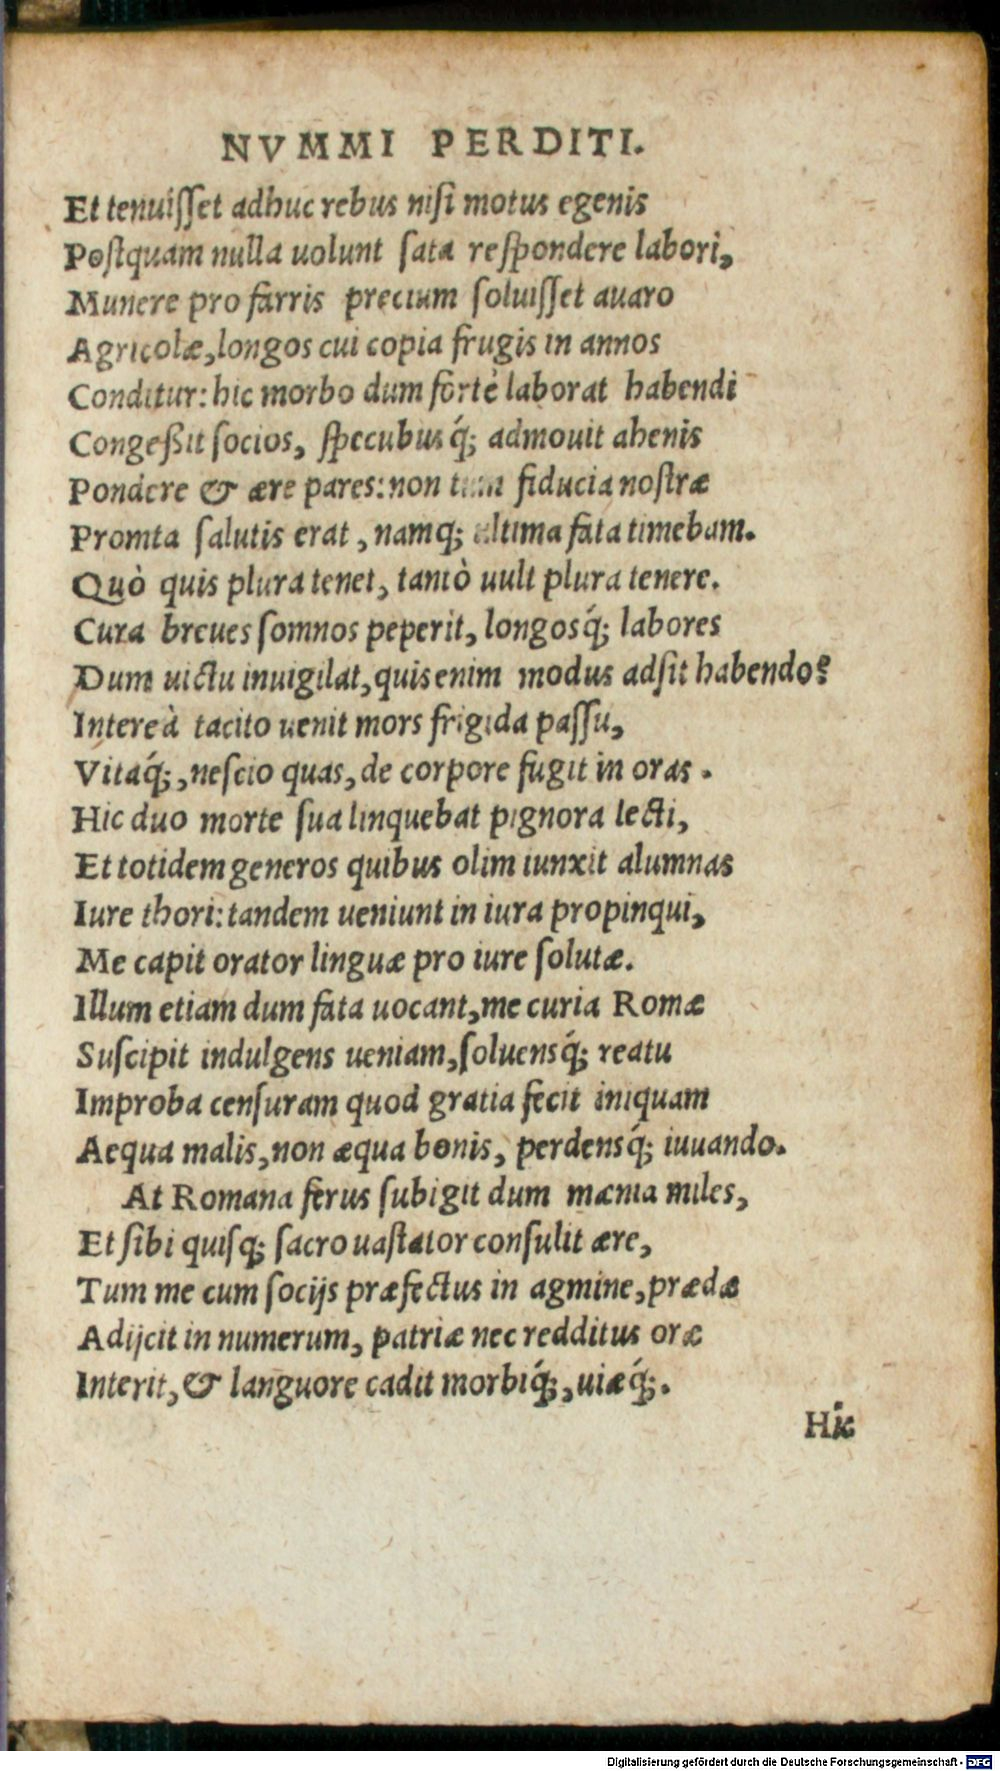 NVMMI PERDITI.
Et tenuiſſet adhuc rebus niſi motus egenis
Poſtquam nulla uolunt ſata reſpondere labori,
Munere pro farris precium ſoluiſſet auaro
Agricolæ, longos cui copia frugis in annos
Conditur: hic morbo dum fortè laborat habendi
Congeßit ſocios, ſpecubusq́; admouit ahenis
Pondere & ære pares: non tam fiducia noſtræ
Promta ſalutis erat, namq; ultima fata timebam.
Quò quis plura tenet, tantò uult plura tenere.
Cura breues ſomnos peperit, longosq́; labores
Dum uictu inuigilat, quis enim modus adſit habendo?
Intereà tacito uenit mors frigida paſſu,
Vitaq́;, neſcio quas, de corpore fugit in oras.
Hic duo morte ſua linquebat pignora lecti,
Et totidem generos quibus olim iunxit alumnas
Iure thori: tandem ueniunt in iura propinqui,
Me capit orator linguæ pro iure ſolutæ.
Illum etiam dum fata uocant, me curia Romæ
Suſcipit indulgens ueniam, ſoluensq́; reatu
Improba cenſuram quod gratia fecit iniquam
Aequa malis, non æqua bonis, perdensq́; iuuando.
At Romana ferus ſubigit dum mœnia miles,
Et ſibi quiſq; ſacro uaſtator conſulit ære,
Tum me cum ſocijs præfectus in agmine, prædæ
Adijcit in numerum, patriæ nec redditus oræ
Interit, & languore cadit morbiq́;, uiæq́;.
Hic
Digitalisierung gefördert durch die Deutsche Forschungsgemeinschaft - DFG